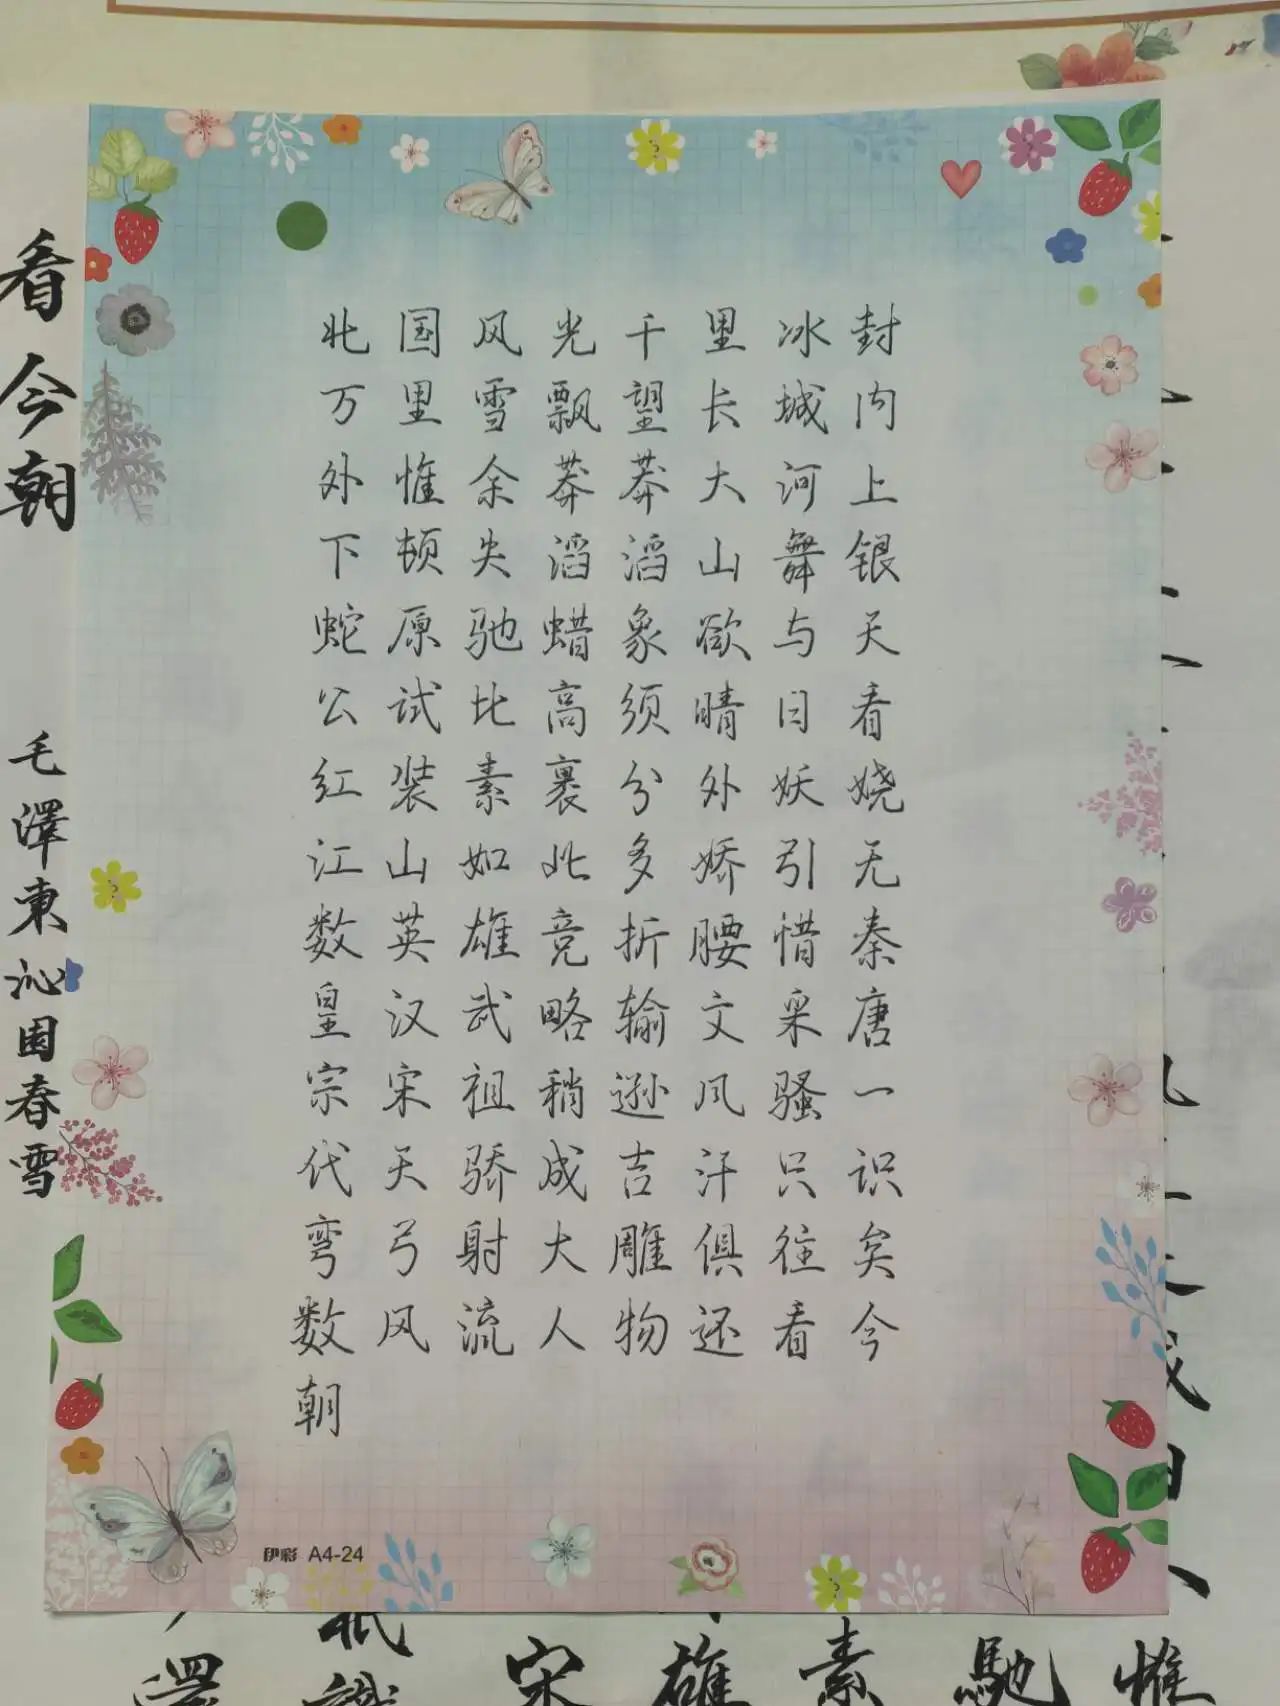 看今朝
毛澤東沁园春雪
北国风光千里冰封
万里雪飘望长城内
外惟余莽莽大河上
下顿失滔滔山舞银
蛇原驰蜡象欲与天
公试比高须晴日看
红装素裹分外妖娆
江山如此多娇引无
数英雄竞折腰惜秦
皇汉武略输文采唐
宗宋祖稍逊风骚一
代天骄成吉汗只识
弯弓射大雕俱往矣
数风流人物还看今
朝
伊彩 A4-24
宋 雄 素 馳 惟